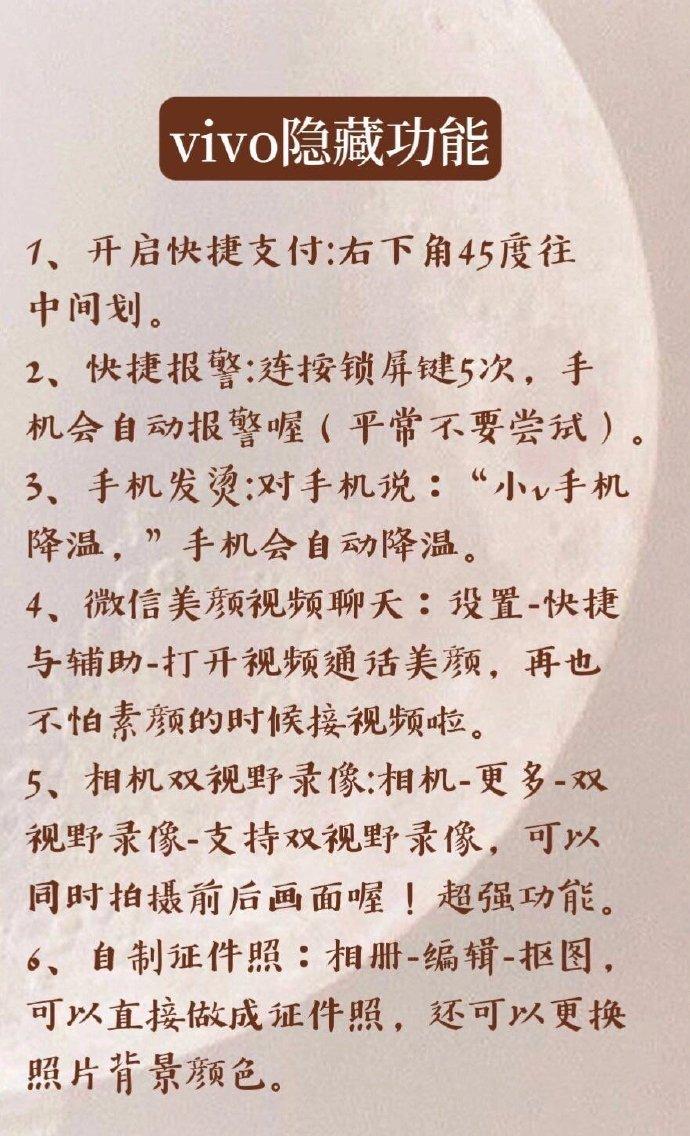 vivo隐藏功能
1、开启快捷支付:右下角45度往
中间划。
2、快捷报警:连按锁屏键5次，手
机会自动报警喔（平常不要尝试）。
3、手机发烫:对手机说：“小v手机
降温，”手机会自动降温。
4、微信美颜视频聊天：设置-快捷
与辅助-打开视频通话美颜，再也
不怕素颜的时候接视频啦。
5、相机双视野录像:相机-更多-双
视野录像-支持双视野录像，可以
同时拍摄前后画面喔！超强功能。
6、自制证件照：相册-编辑-抠图，
可以直接做成证件照，还可以更换
照片背景颜色。